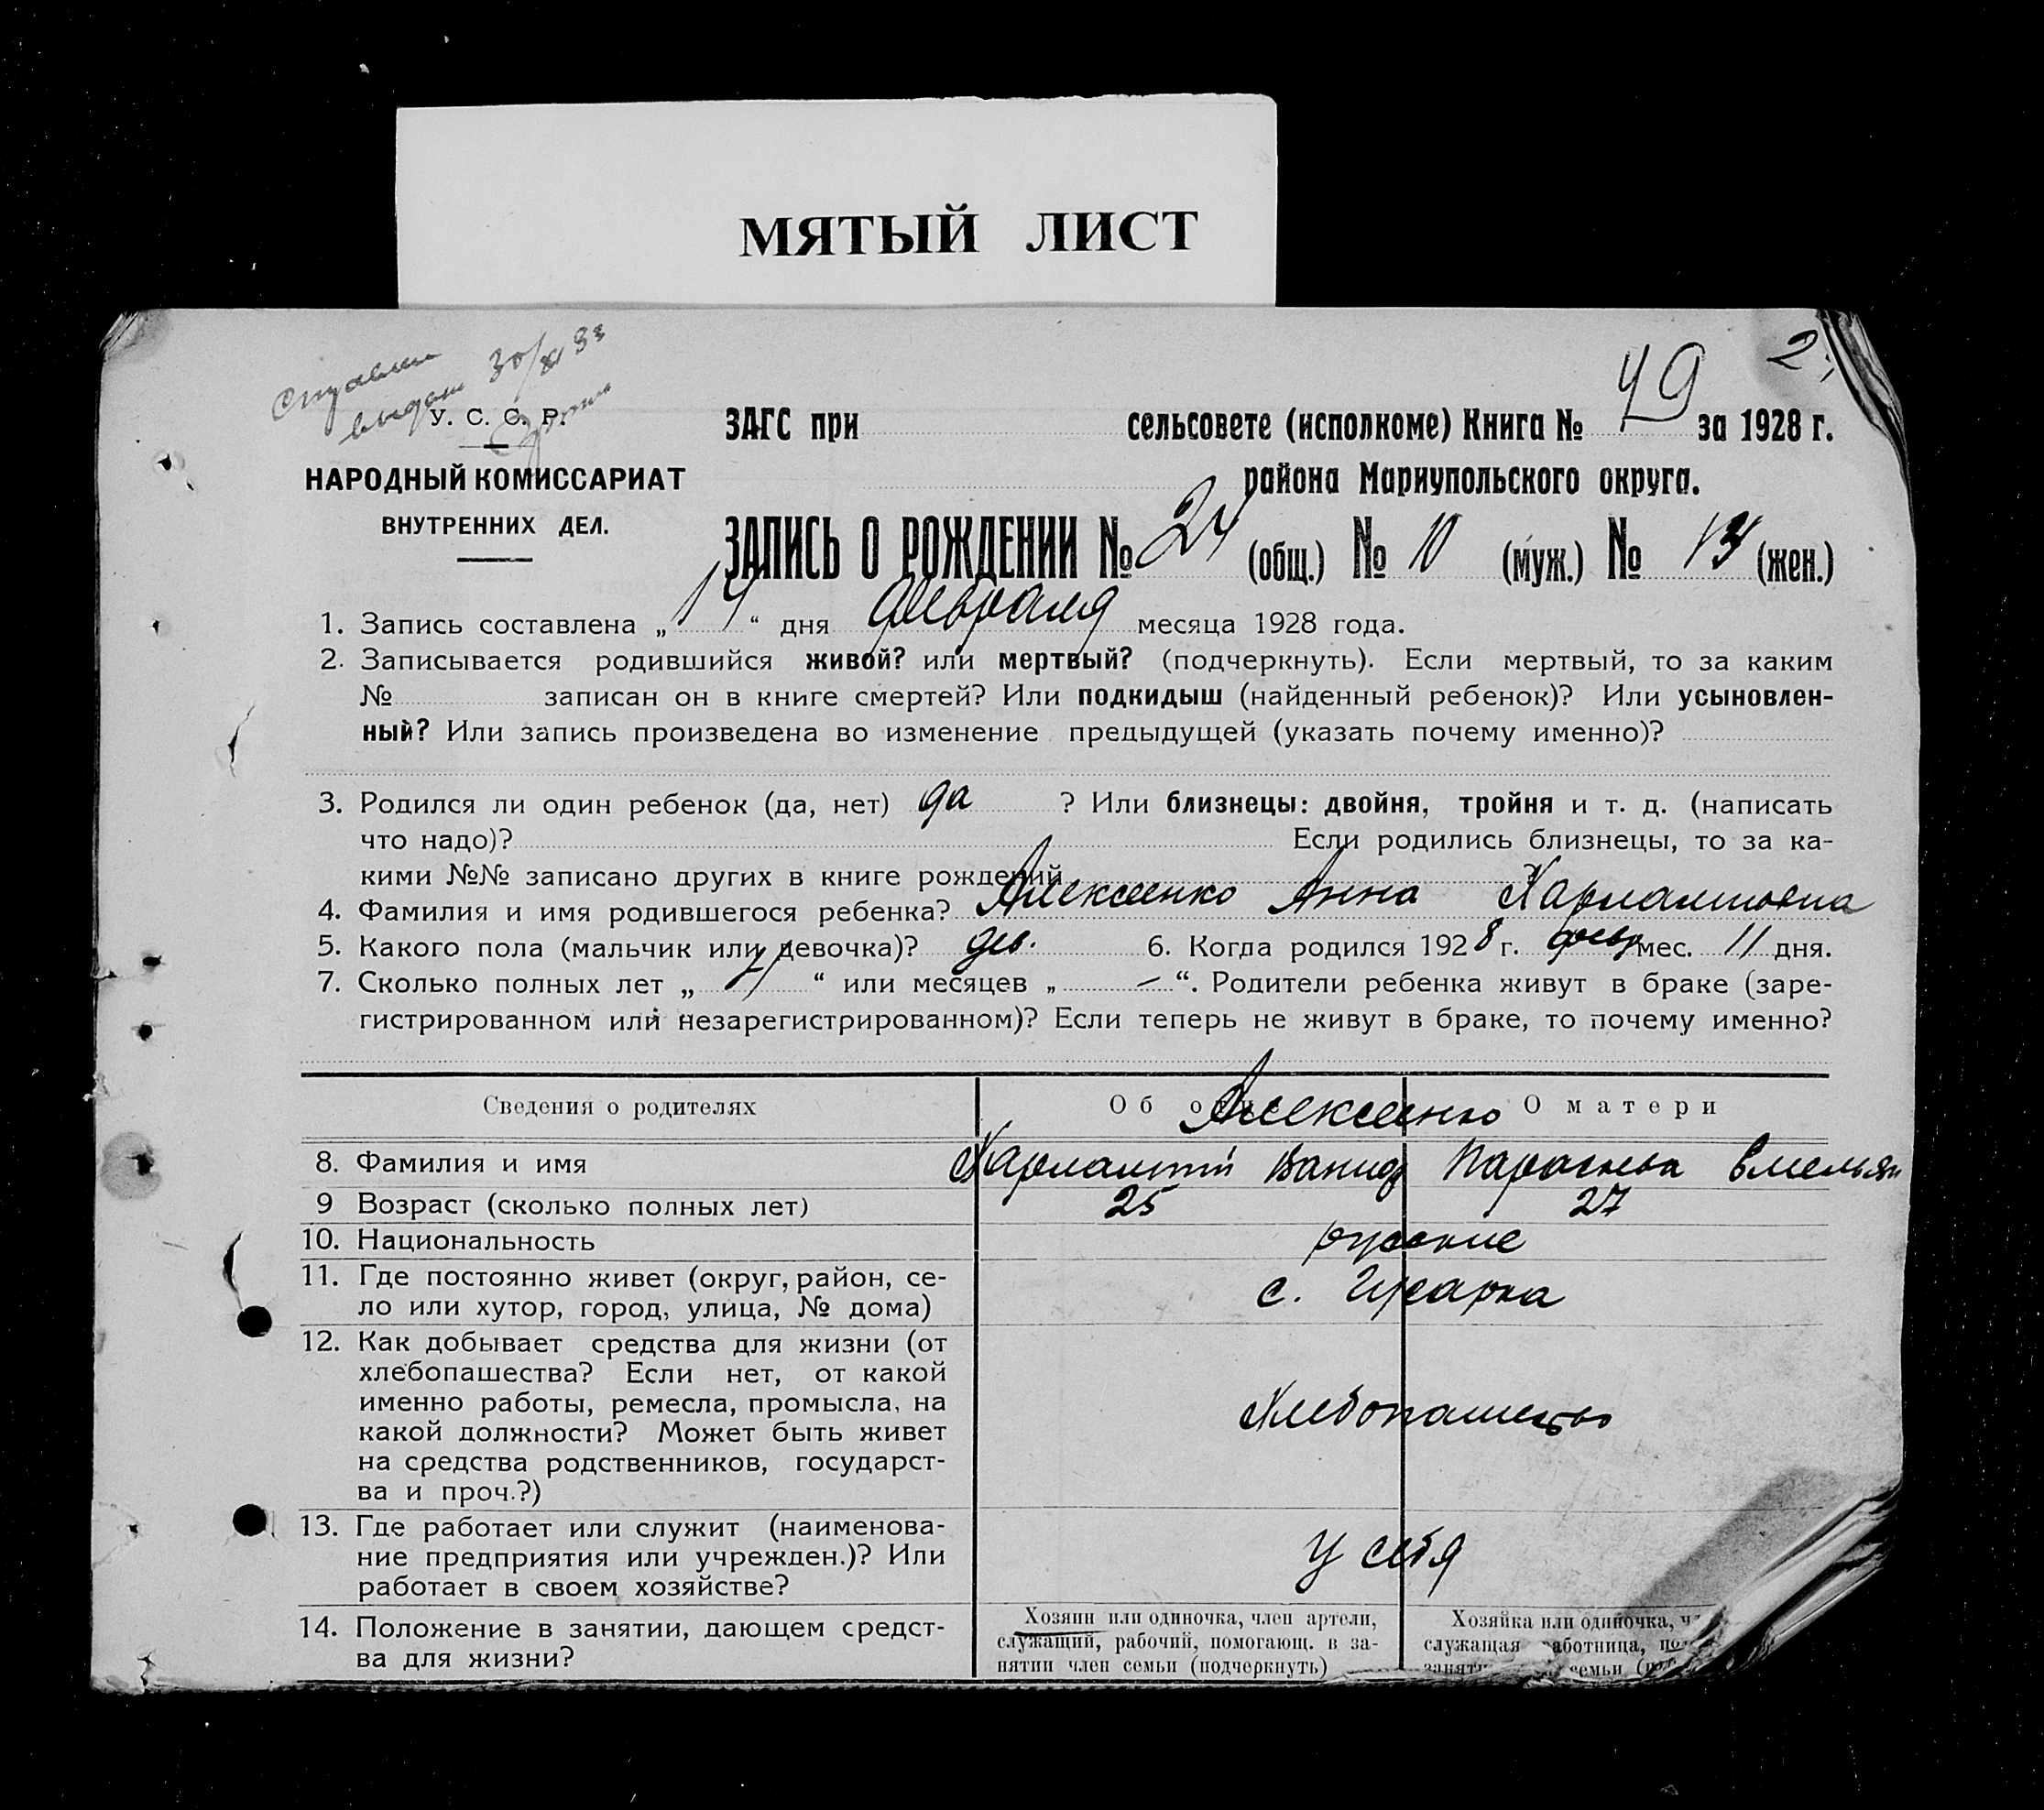 МЯТЫЙ ЛИСТ
2
49
выдан 30/XI 33
У. С. С. Р.
ЗАГС при сельсовете (исполкоме) Книга № за 1928 г.
НАРОДНЫЙ КОМИССАРИАТ
района Мариупольского округа.
ВНУТРЕННИХ ДЕЛ.
ЗАПИСЬ О РОЖДЕНИИ № 24 (общ.) № 10 (муж.) № (жен.)
1. Запись составлена „ 14 “ дня февраля месяца 1928 года.
2. Записывается родившийся живой? или мертвый? (подчеркнуть). Если мертвый, то за каким
№ записан он в книге смертей? Или подкидыш (найденный ребенок)? Или усыновлен-
ный? Или запись произведена во изменение предыдущей (указать почему именно)?
3. Родился ли один ребенок (да, нет) да ? Или близнецы: двойня, тройня и т. д. (написать
что надо)? Если родились близнецы, то за ка-
кими №№ записано других в книге рождений
4. Фамилия и имя родившегося ребенка? Алексеенко Анна Харлампиевна
5. Какого пола (мальчик или девочка)? дев. 6. Когда родился 1928 г. февр мес. 11 дня.
7. Сколько полных лет „ “ или месяцев „ – “. Родители ребенка живут в браке (заре-
гистрированном или незарегистрированном)? Если теперь не живут в браке, то почему именно?
Сведения о родителях
Об отце
О матери
Алексеенко
8. Фамилия и имя
Харлампий
9 Возраст (сколько полных лет)
25
27
10. Национальность
русские
11. Где постоянно живет (округ, район, се-
ло или хутор, город, улица, № дома)
с. Игнатьевка
12. Как добывает средства для жизни (от
хлебопашества? Если нет, от какой
именно работы, ремесла, промысла, на
какой должности? Может быть живет
на средства родственников, государст-
ва и проч.?)
Хлебопашество
13. Где работает или служит (наименова-
ние предприятия или учрежден.)? Или
работает в своем хозяйстве?
у себя
14. Положение в занятии, дающем средст-
ва для жизни?
Хозяин или одиночка, член артели,
служащий, рабочий, помогающ. в за-
нятии член семьи (подчеркнуть)
Хозяйка или одиночка,
служащая работница,
семьи